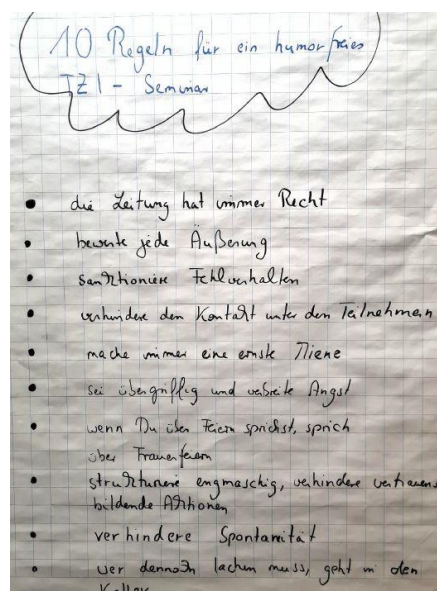 10 Regeln für ein humorfreies
TZI - Seminar
• die Leitung hat immer Recht
• bewerte jede Äußerung
• sanktioniere Fehlverhalten
• verhindere den Kontakt unter den Teilnehmern
• mache immer eine ernste Miene
• sei übergriffig und verbreite Angst
• wenn Du über Feiern sprichst, sprich
über Trauerfeiern
• strukturiere engmaschig, verhindere vertrauens
bildende Aktionen
• verhindere Spontanität
• wer dennoch lachen muss, geht in den
Keller